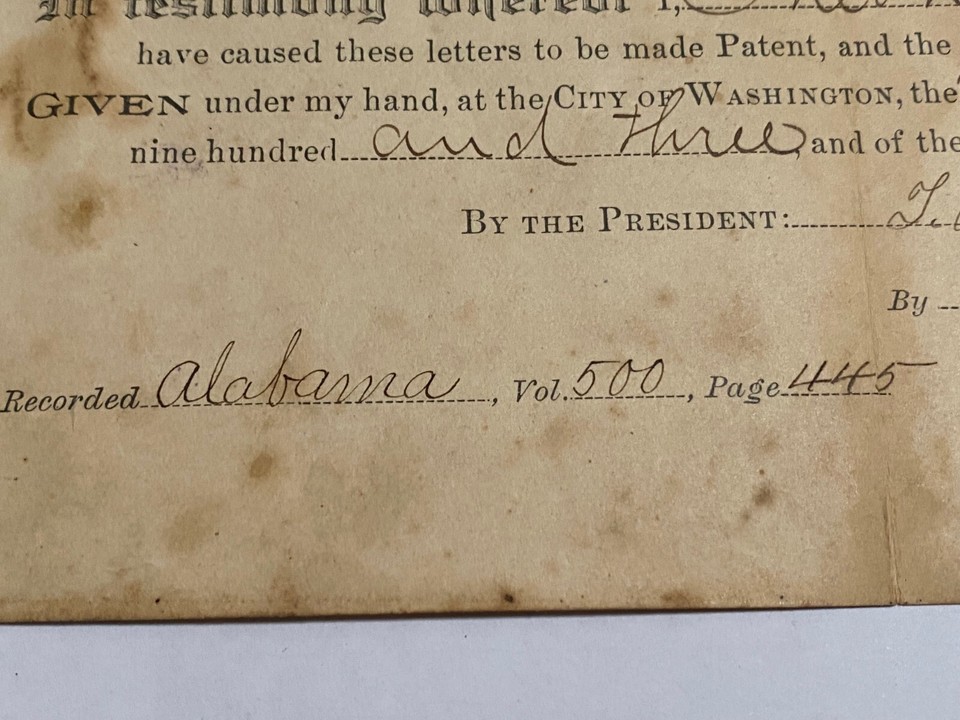 In testimony whereof I,
have caused these letters to be made Patent, and the
GIVEN under my hand, at the CITY OF WASHINGTON, the
nine hundred and three, and of the
BY THE PRESIDENT: T.
By
Recorded Alabama, Vol. 500, Page 445